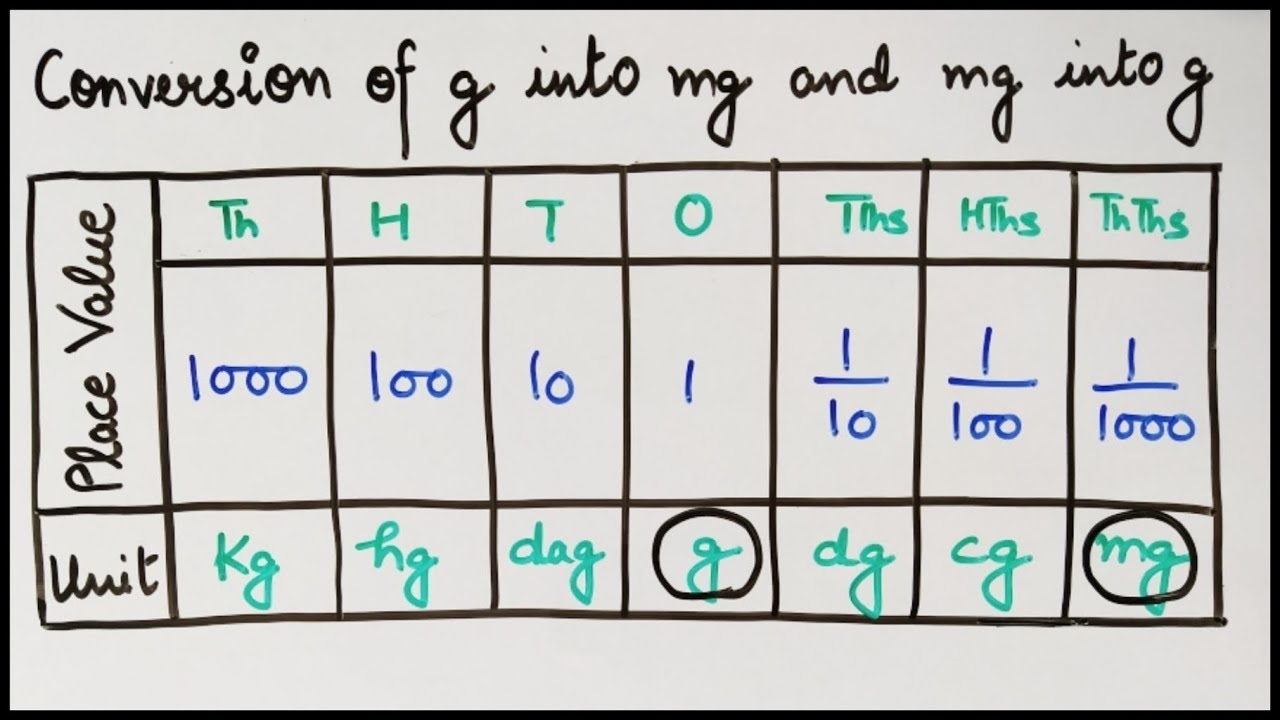 Conversion of g into mg and mg into g
Place Value
Th H T O Tths HThs ThThs
1000 100 10 1 1/10 1/100 1/1000
Unit Kg hg dag g dg cg mg